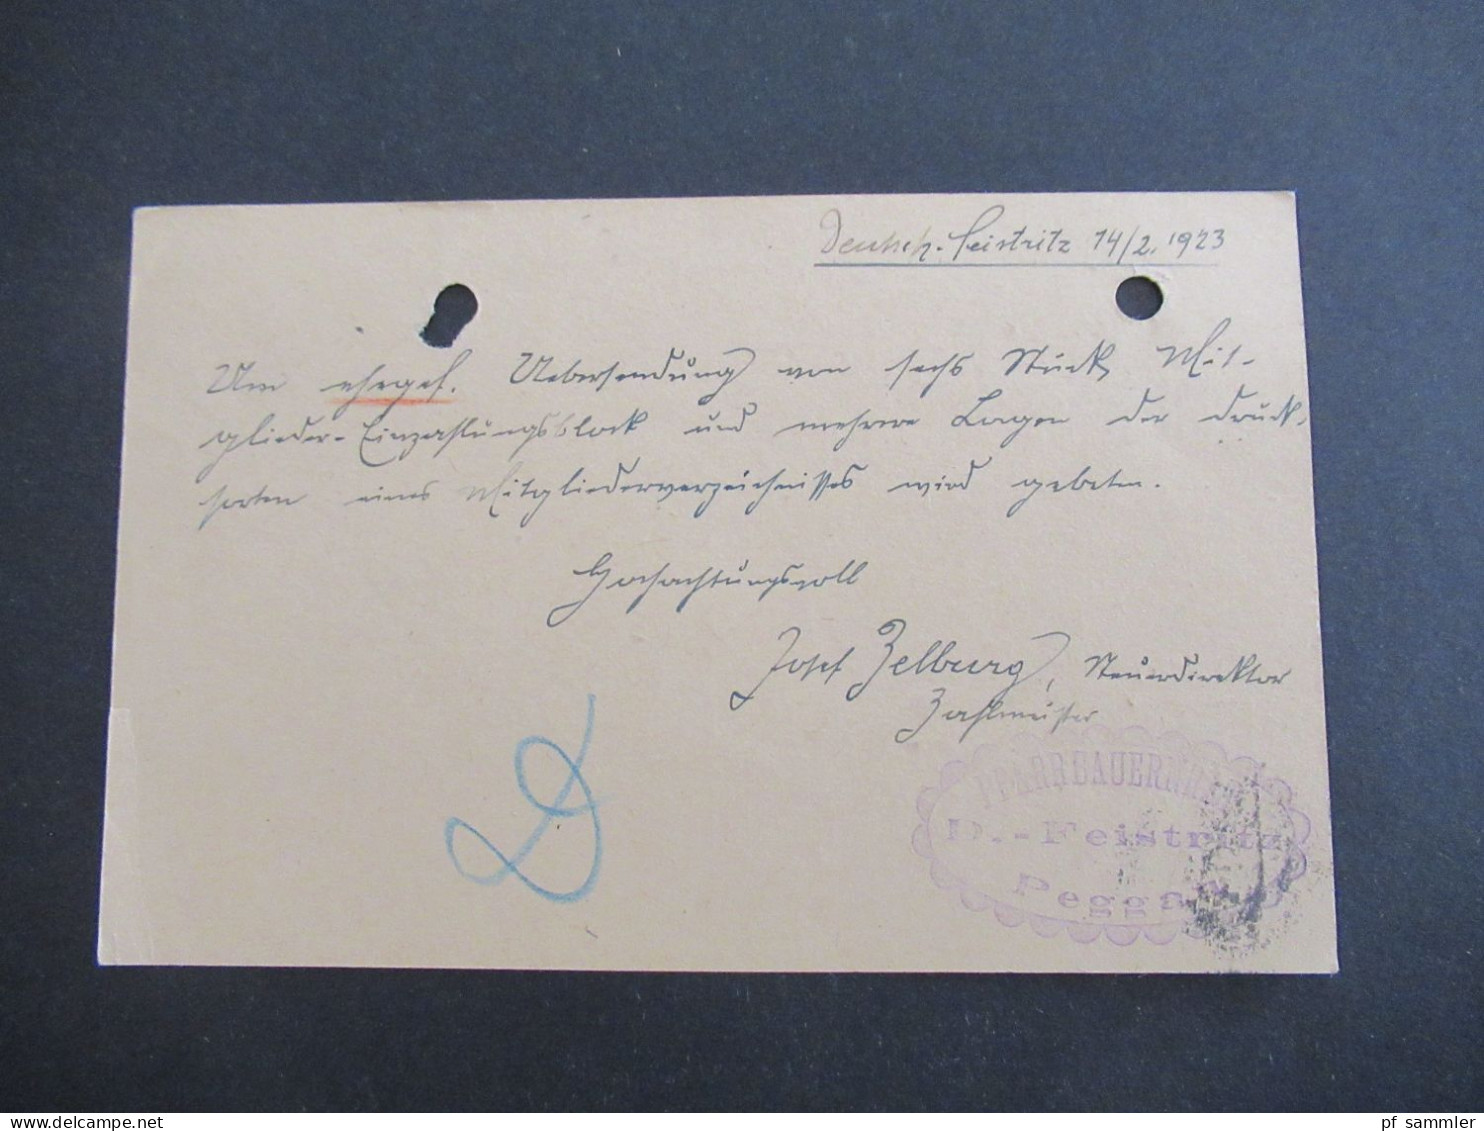 Deutsch-Feistritz 14/2. 1923
Um ehegef. Uebersendung von sechs Stück Mit-
glieder-Einzahlungsblock und mehrere Lagen der Druck-
sorten eines Mitgliederverzeichnisses wird gebeten.
Hochachtungsvoll
Josef Zelburg, Steuerdirektor
Zahlmeister
D.-Feistritz
Peggau
pf sammler
www.delcampe.net